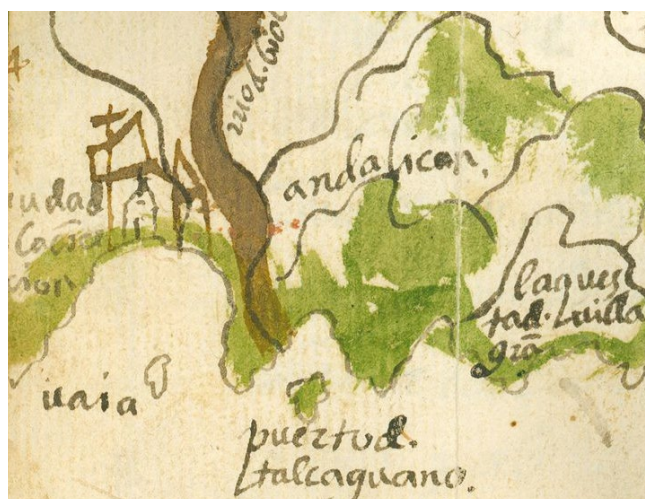 rio d. bio
andalican,
iudad
cion
laques
tad. uilla
grã
uaia
puerto d.
talcaguano.